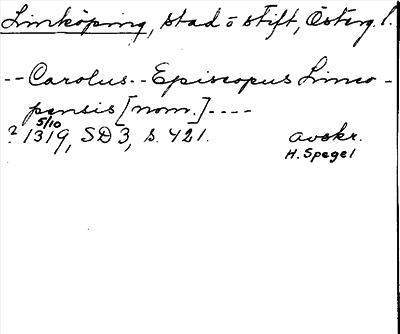 Linköping, stad o stift, Österg. l.
-- Carolus -- Episcopus Linco-
pensis [nom.] ----
? 5/10 1319, SD 3, s. 421. avskr.
H. Spegel